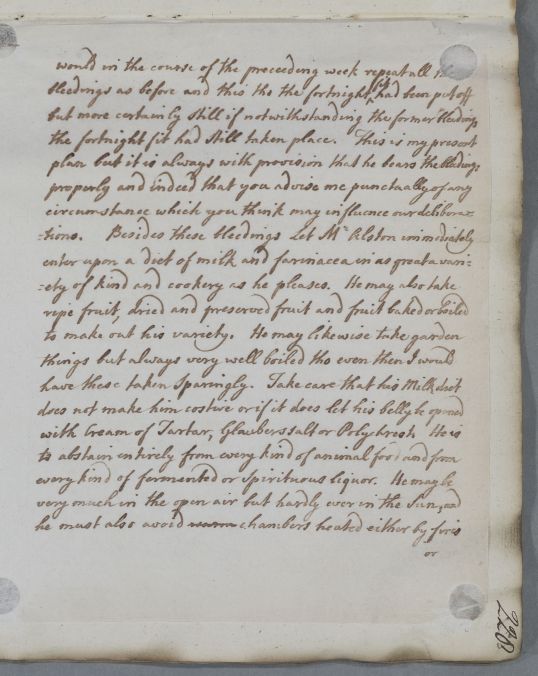 would in the course of the preceeding week repeat all the
bleedings as before and this tho the fortnight fit had been put off
but more certainly still if notwithstanding the former bleedings
the fortnight fit had still taken place. This is my present
plan but it is always with provision that he bears the bleedings
properly and indeed that you advise me punctually of any
circumstance which you think may influence our delibera=
=tions. Besides these bleedings Let Mr Alston immediately
enter upon a diet of milk and farinacea in as great a vari=
=ety of kind and cookery as he pleases. He may also take
ripe fruit, dried and preserved fruit and fruit baked or boiled
to make out his variety. He may likewise take garden
things but always very well boiled tho even then I would
have these taken Sparingly. Take care that his Milk diet
does not make him costive or if it does let his belly be opened
with Cream of Tartar, Glaubers salt or Polychrest. He is
to abstain entirely from every kind of animal food and from
every kind of fermented or spirituous liquor. He may be
very much in the open air but hardly ever in the Sun, and
he must also avoid warm chambers heated either by fires
or
228